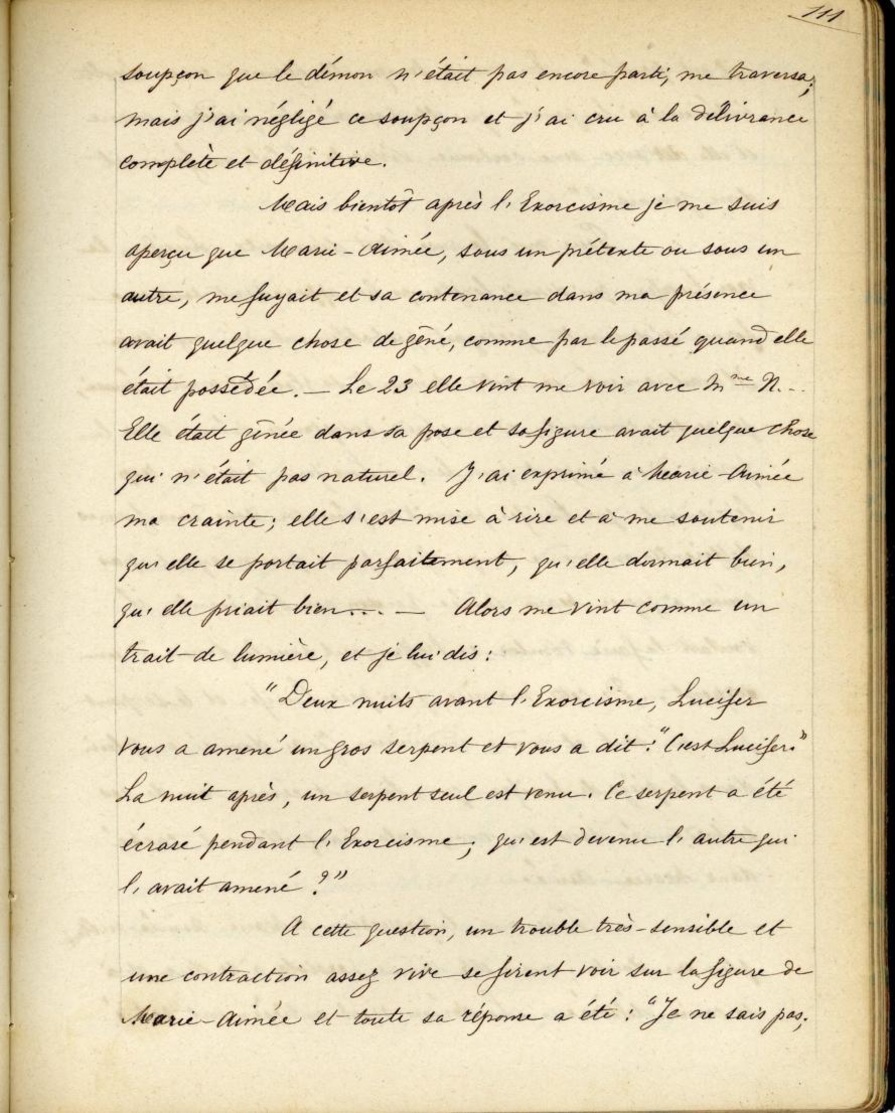 111
soupçon que le démon n'était pas encore parti, me traversa;
mais j'ai négligé ce soupçon et j'ai cru à la délivrance
complète et définitive.
Mais bientôt après l'Exorcisme je me suis
aperçu que Marie-Aimée, sous un prétexte ou sous un
autre, me fuyait et sa contenance dans ma présence
avait quelque chose de gêné, comme par le passé quand elle
était possédée. — Le 23 elle vint me voir avec Mme N...
Elle était gênée dans sa pose et sa figure avait quelque chose
qui n'était pas naturel. J'ai exprimé à Marie-Aimée
ma crainte; elle s'est mise à rire et à me soutenir
qu'elle se portait parfaitement, qu'elle dormait bien,
qu'elle priait bien... — Alors me vint comme un
trait de lumière, et je lui dis:
"Deux nuits avant l'Exorcisme, Lucifer
vous a amené un gros serpent et vous a dit: "C'est Lucifer."
La nuit après, un serpent seul est venu. Ce serpent a été
écrasé pendant l'Exorcisme; qu'est devenu l'autre qui
l'avait amené?"
A cette question, un trouble très-sensible et
une contraction assez vive se firent voir sur la figure de
Marie-Aimée et toute sa réponse a été: "Je ne sais pas,